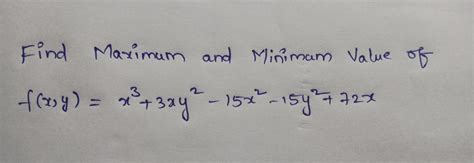 Find Maximum and Minimum Value of
f(x,y) = x³+3xy²-15x²-15y²+72x